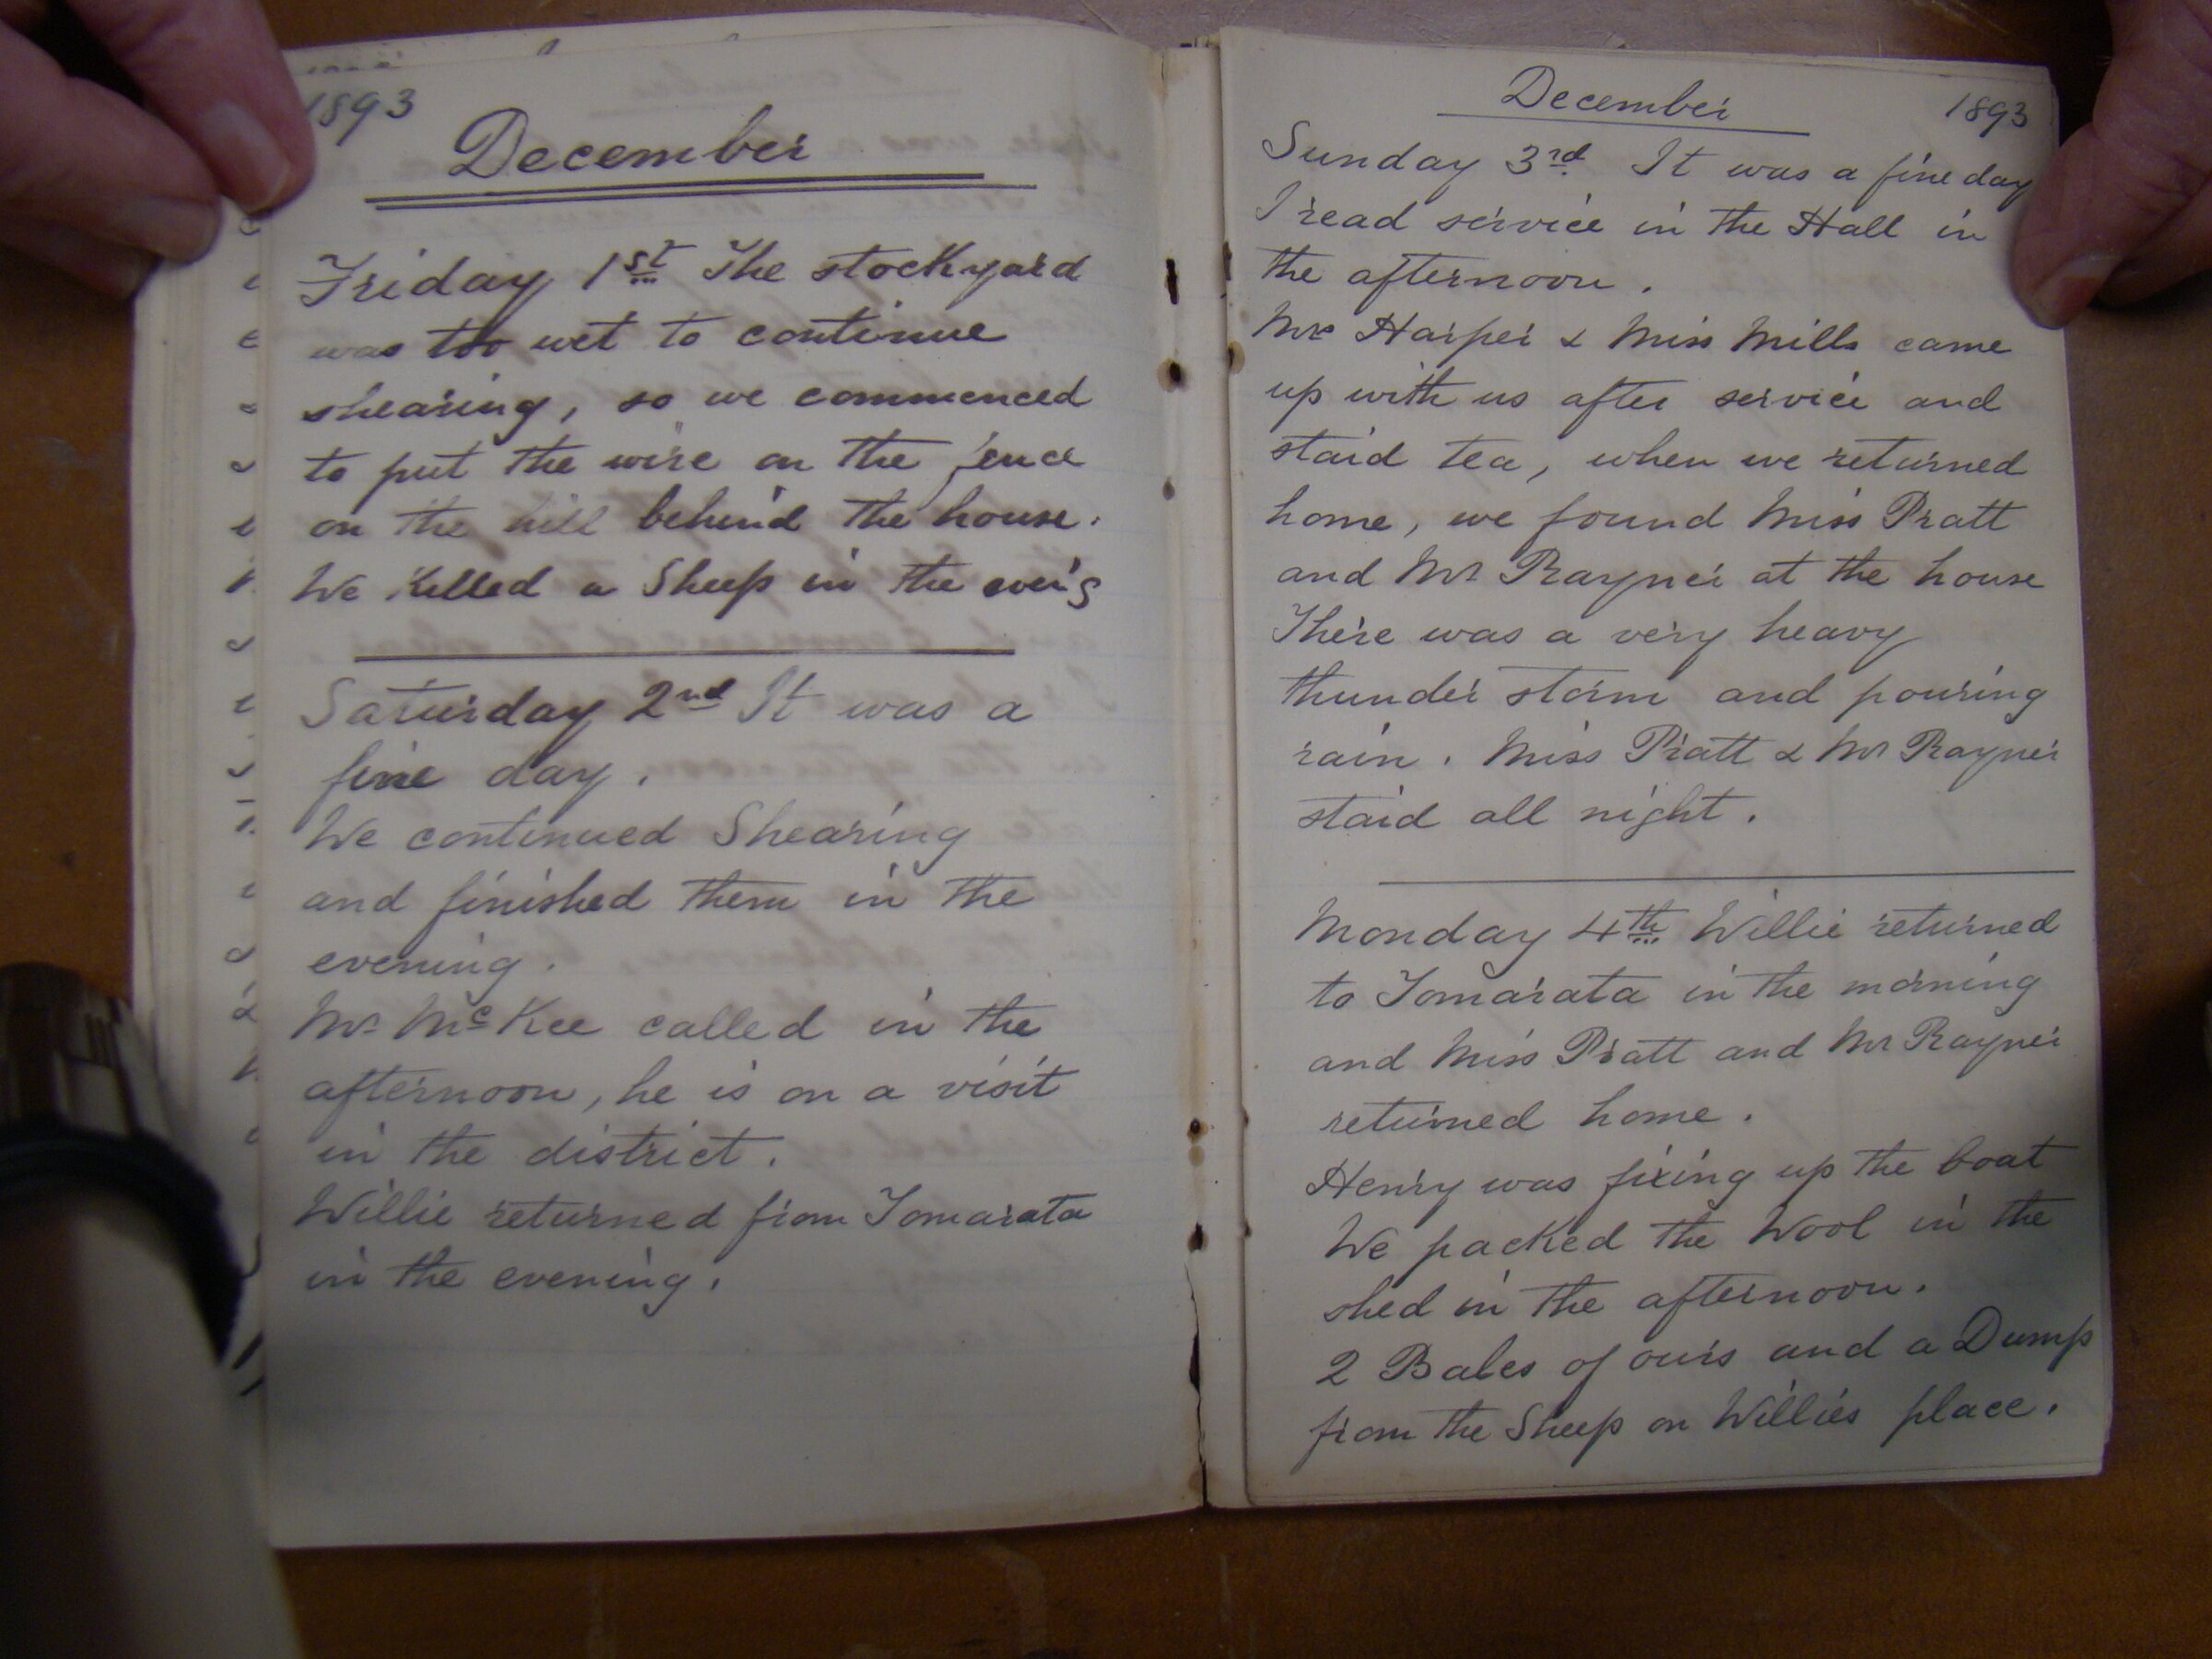 1893
December
Friday 1st The stockyard
was too wet to continue
shearing, so we commenced
to put the wire on the fence
on the hill behind the house.
We Killed a Sheep in the even'g
Saturday 2nd It was a
fine day.
We continued Shearing
and finished them in the
evening.
Mr McKee called in the
afternoon, he is on a visit
in the district.
Willie returned from Tomarata
in the evening.
December 1893
Sunday 3rd It was a fine day
I read service in the Hall in
the afternoon.
Mrs Harper & Miss Mills came
up with us after service and
staid tea, when we returned
home, we found Miss Pratt
and Mr Rayner at the house
There was a very heavy
thunder storm and pouring
rain. Miss Pratt & Mr Rayner
staid all night.
Monday 4th Willie returned
to Tomarata in the morning
and Miss Pratt and Mr Rayner
returned home.
Henry was fixing up the boat
We packed the Wool in the
shed in the afternoon.
2 Bales of ours and a Dump
from the Sheep on Willies place.